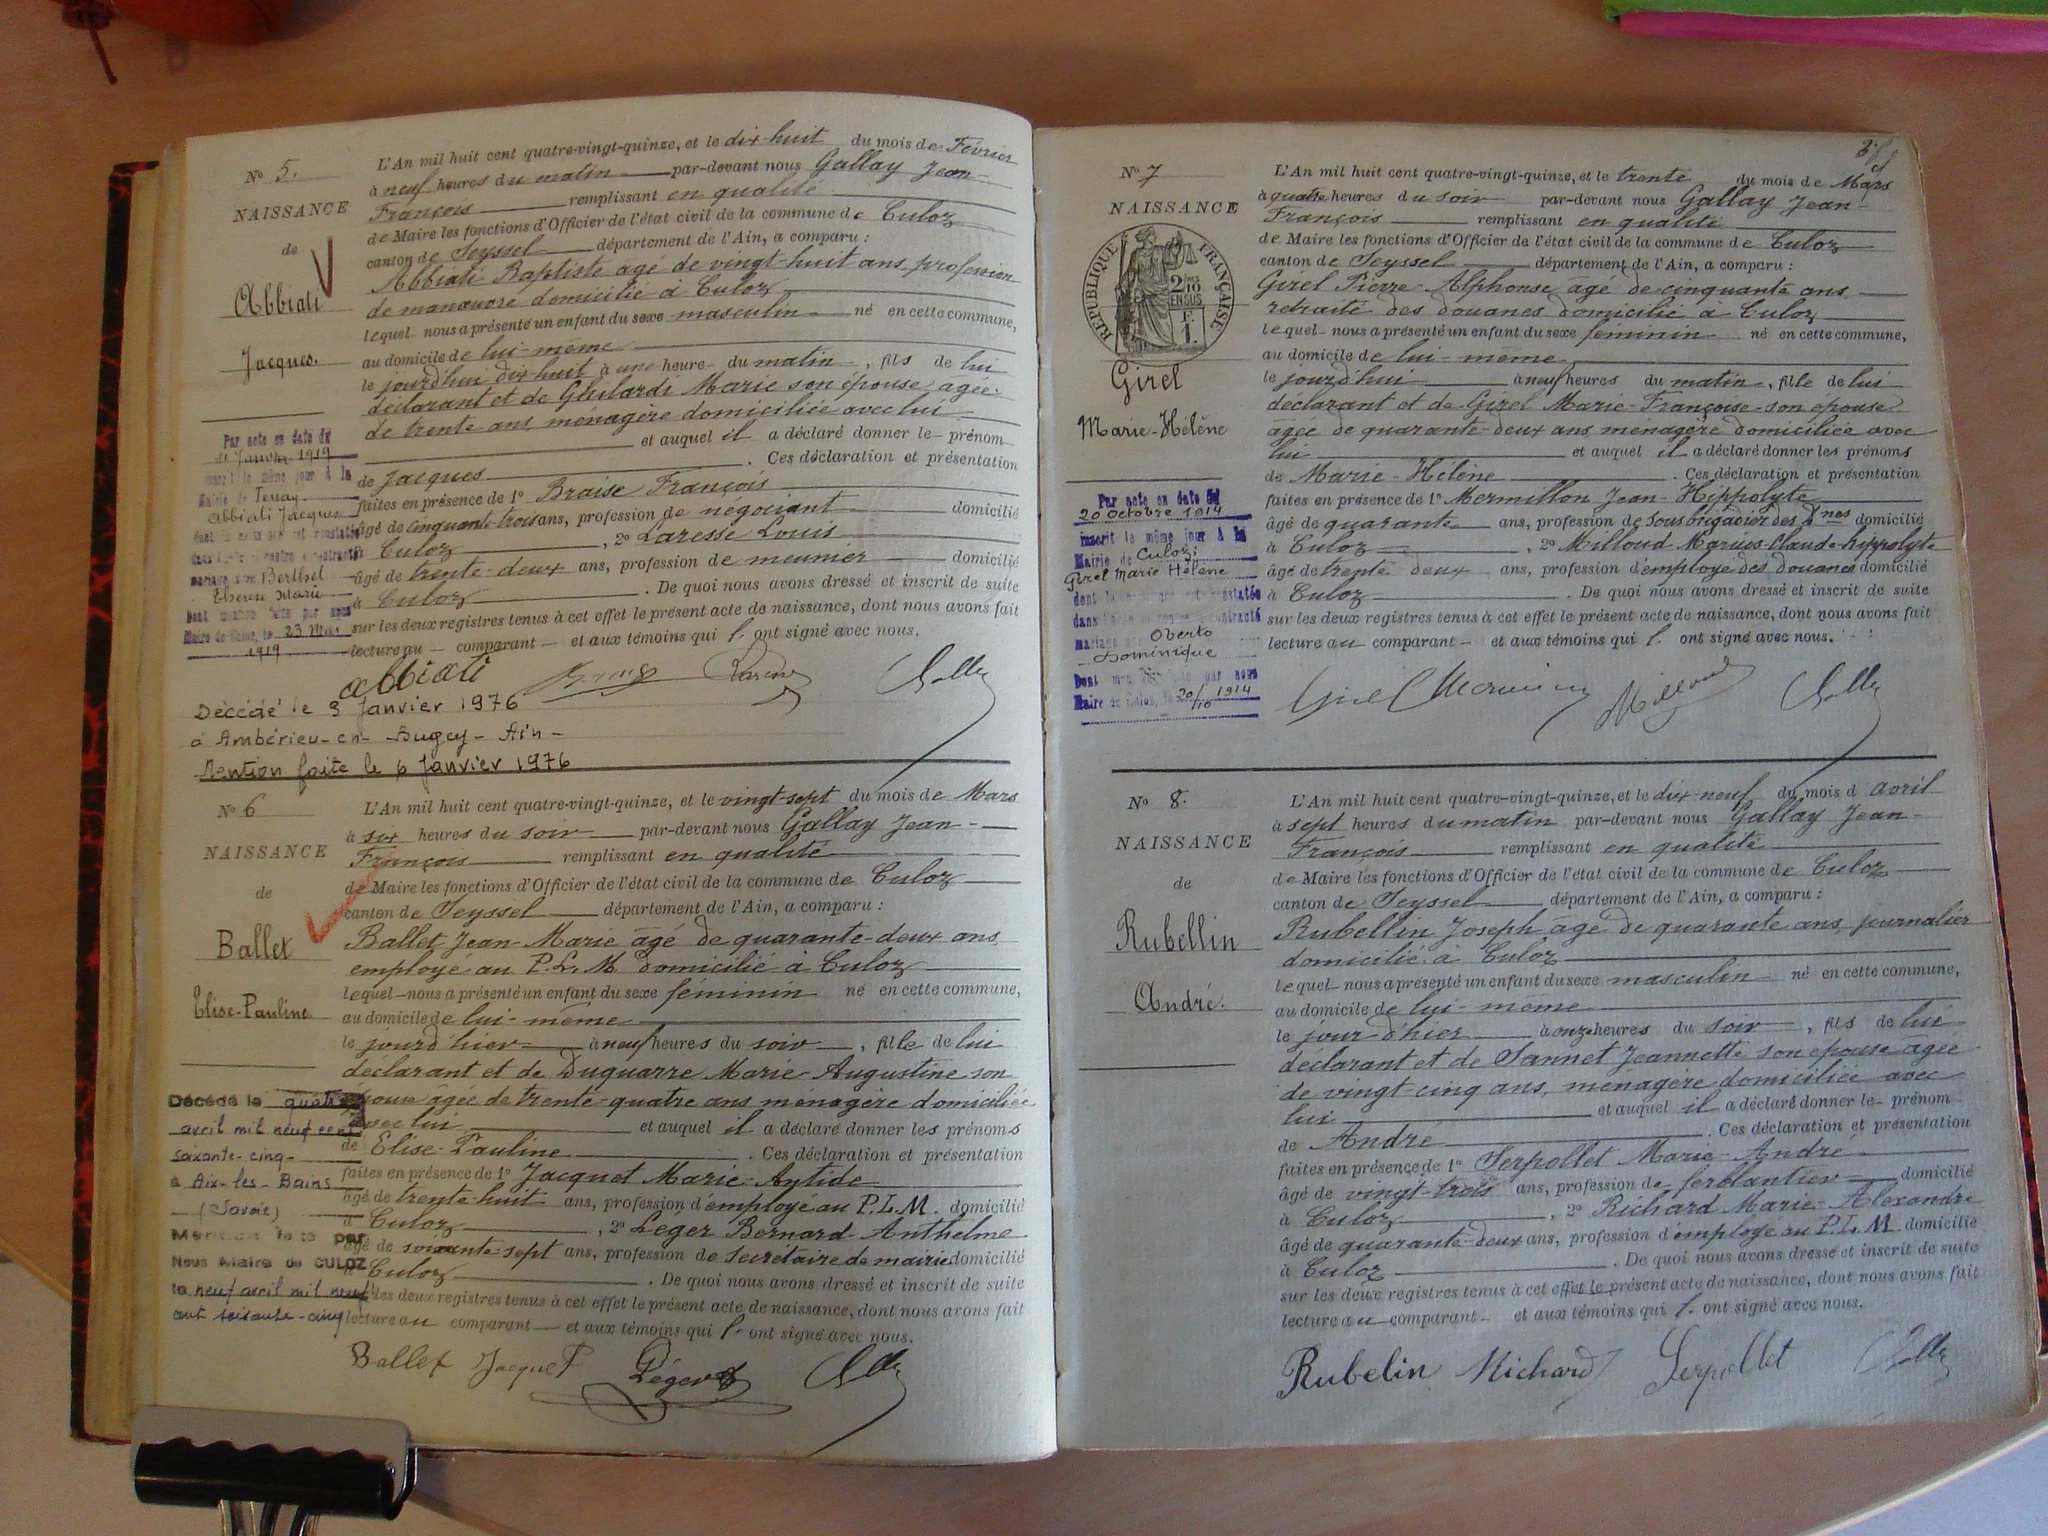 N° 5.
NAISSANCE
de
Abbiati
Jacques.
Par acte en date du
11 Janvier 1919
inscrit le même jour à la
Mairie de Tenay
Abbiati Jacques
mariage avec Berthet
Therese Marie
Dont mention faite par nous
Maire de Culoz, le 23 Mai
1919
L'An mil huit cent quatre-vingt-quinze, et le dix-huit du mois de Février
à neuf heures du matin par-devant nous Gallay Jean-
François remplissant en qualité
de Maire les fonctions d'Officier de l'état civil de la commune de Culoz
canton de Seyssel département de l'Ain, a comparu :
Abbiati Baptiste âgé de vingt-huit ans profession
de manœuvre domicilié à Culoz
lequel nous a présenté un enfant du sexe masculin né en cette commune,
au domicile de lui-même
le jourd'hui dix-huit à une heure du matin, fils de lui
déclarant et de Ghilardi Marie son épouse âgée
de trente ans ménagère domiciliée avec lui
et auquel il a déclaré donner le prénom
de Jacques. Ces déclaration et présentation
faites en présence de 1° Braise François
âgé de cinquante-trois ans, profession de négociant domicilié
à Culoz, 2° Laresse Louis
âgé de trente-deux ans, profession de meunier domicilié
à Culoz. De quoi nous avons dressé et inscrit de suite
sur les deux registres tenus à cet effet le présent acte de naissance, dont nous avons fait
lecture au comparant et aux témoins qui l' ont signé avec nous.
Abbiati
Décédé le 3 Janvier 1976
à Ambérieu-en-Bugey-Ain-
Mention faite le 6 Janvier 1976
N° 6
NAISSANCE
de
Ballet
Elise-Pauline
Décédé le quatre
avril mil neuf cent
soixante-cinq
à Aix-les-Bains
(Savoie)
Mention faite par
Nous Maire de CULOZ
le neuf avril mil neuf
cent soixante-cinq
L'An mil huit cent quatre-vingt-quinze, et le vingt-sept du mois de Mars
à six heures du soir par-devant nous Gallay Jean-
François remplissant en qualité
de Maire les fonctions d'Officier de l'état civil de la commune de Culoz
canton de Seyssel département de l'Ain, a comparu :
Ballet Jean-Marie âgé de quarante-deux ans
employé au P.L.M domicilié à Culoz
lequel nous a présenté un enfant du sexe féminin né en cette commune,
au domicile de lui-même
le jourd'hier à neuf heures du soir, fille de lui
déclarant et de Duquarre Marie Augustine son
épouse âgée de trente-quatre ans ménagère domiciliée
avec lui et auquel il a déclaré donner les prénoms
de Elise-Pauline. Ces déclaration et présentation
faites en présence de 1° Jacquet Marie-Aytide
âgé de trente-huit ans, profession d'employé au P.L.M. domicilié
à Culoz, 2° Léger Bernard-Anthelme
âgé de soixante-sept ans, profession de secrétaire de mairie domicilié
à Culoz. De quoi nous avons dressé et inscrit de suite
les deux registres tenus à cet effet le présent acte de naissance, dont nous avons fait
lecture au comparant et aux témoins qui l' ont signé avec nous.
Ballet Jacquet Léger
N° 7
NAISSANCE
RÉPUBLIQUE FRANÇAISE
2/10
EN SUS
F.
1.
Girel
Marie-Hélène
Par acte en date du
20 Octobre 1914
inscrit le même jour à la
Mairie de Culoz
Girel Marie Hélène
Oberto
Dominique
20/10 1914
L'An mil huit cent quatre-vingt-quinze, et le trente du mois de Mars
à quatre heures du soir par-devant nous Gallay Jean-
François remplissant en qualité
de Maire les fonctions d'Officier de l'état civil de la commune de Culoz
canton de Seyssel département de l'Ain, a comparu :
Girel Pierre Alphonse âgé de cinquante ans
retraité des douanes domicilié à Culoz
lequel nous a présenté un enfant du sexe féminin né en cette commune,
au domicile de lui-même
le jourd'hui à neuf heures du matin, fille de lui
déclarant et de Girel Marie-Françoise son épouse
âgée de quarante-deux ans ménagère domiciliée avec
lui et auquel il a déclaré donner les prénoms
de Marie-Hélène. Ces déclaration et présentation
faites en présence de 1° Mermillon Jean-Hippolyte
âgé de quarante ans, profession de sous brigadier des dnes domicilié
à Culoz, 2° Milloud Marius-Claude-hippolyte
âgé de trente deux ans, profession d'employé des douanes domicilié
à Culoz. De quoi nous avons dressé et inscrit de suite
sur les deux registres tenus à cet effet le présent acte de naissance, dont nous avons fait
lecture au comparant et aux témoins qui l' ont signé avec nous.
Girel
N° 8.
NAISSANCE
de
Rubellin
André.
L'An mil huit cent quatre-vingt-quinze, et le dix-neuf du mois d avril
à sept heures du matin par-devant nous Gallay Jean-
François remplissant en qualité
de Maire les fonctions d'Officier de l'état civil de la commune de Culoz
canton de Seyssel département de l'Ain, a comparu :
Rubellin Joseph âgé de quarante ans, journalier
domicilié à Culoz
lequel nous a présenté un enfant du sexe masculin né en cette commune,
au domicile de lui-même
le jour d'hier à onze heures du soir, fils de lui
déclarant et de Sannet Jeannette son épouse âgée
de vingt-cinq ans, ménagère domiciliée avec
lui et auquel il a déclaré donner le prénom
de André. Ces déclaration et présentation
faites en présence de 1° Serpollet Marie-André
âgé de vingt-trois ans, profession de ferblantier domicilié
à Culoz, 2° Richard Marie-Alexandre
âgé de quarante-deux ans, profession d'employé au P.L.M. domicilié
à Culoz. De quoi nous avons dressé et inscrit de suite
sur les deux registres tenus à cet effet le présent acte de naissance, dont nous avons fait
lecture au comparant et aux témoins qui l' ont signé avec nous.
Rubelin Richard Serpollet